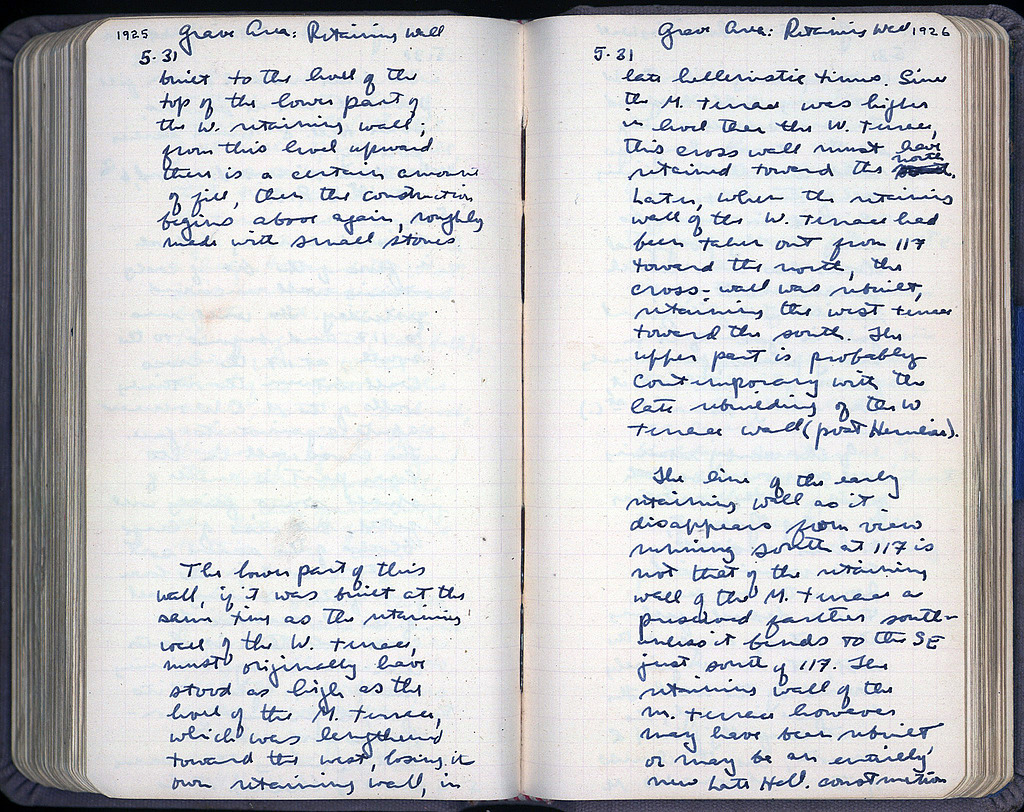 1925 Grave Area: Retaining Wall
5.31
built to the level of the
top of the lower part of
the W. retaining wall;
from this level upward
there is a certain amount
of fill, then the construction
begins above again, roughly
made with small stones
The lower part of this
wall, if it was built at the
same time as the retaining
wall of the W. Terrace,
must originally have
stood as high as the
level of the M. Terrace,
which was lengthened
toward the west, losing it
own retaining wall, in
Grave Area: Retaining Wall 1926
5.31
late hellenistic times. Since
the M. Terrace was higher
in level than the W. Terrace,
this cross wall must have
retained toward the north.
Later, when the retaining
wall of the W. Terrace had
been taken out from 117
toward the north, the
cross-wall was rebuilt,
retaining the west terrace
toward the south. The
upper part is probably
contemporary with the
late rebuilding of the W
Terrace wall (post Herulian).
The line of the early
retaining wall as it
disappears from view
running south at 117 is
not that of the retaining
wall of the M. Terrace as
preserved farther south-
unless it bends to the SE
just south of 117. The
retaining wall of the
M. Terrace however
may have been rebuilt
or may be an entirely
new Late Hell. construction